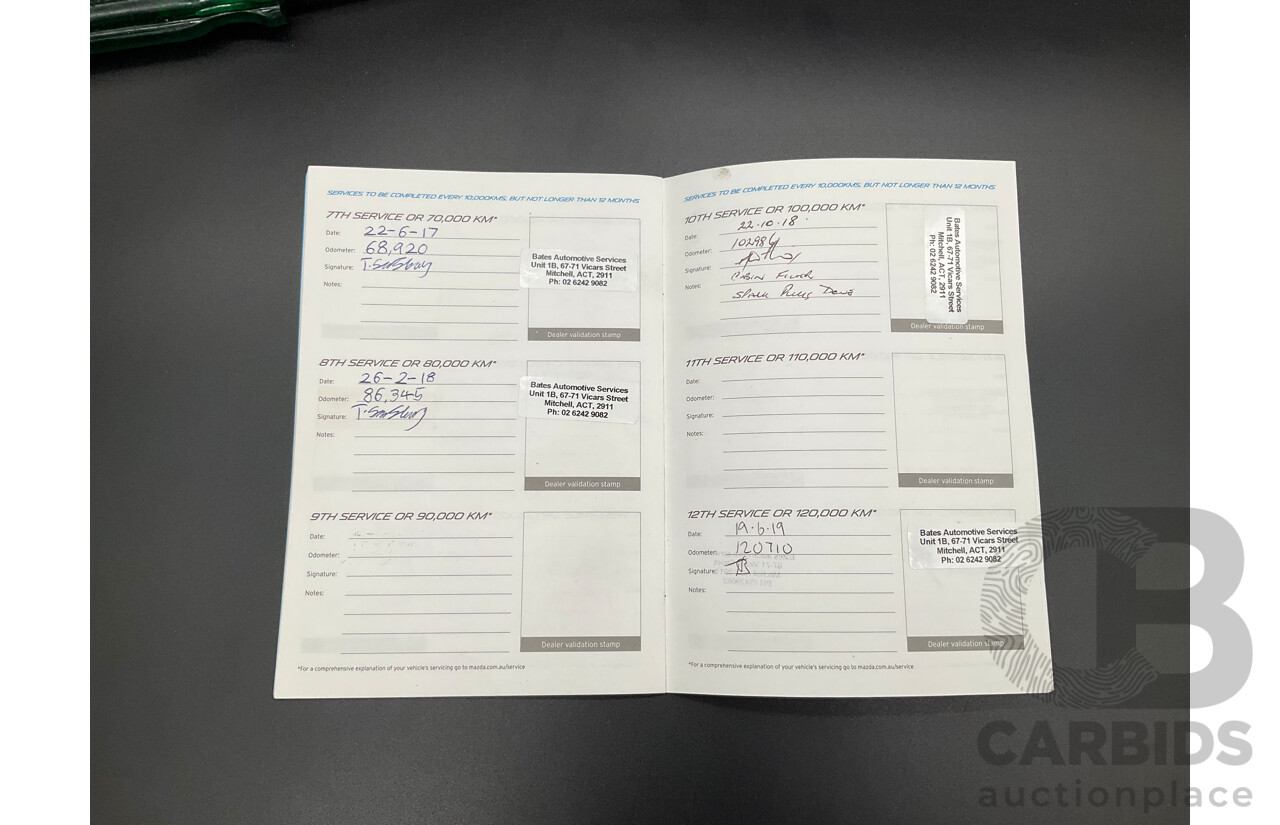 SERVICES TO BE COMPLETED EVERY 10,000KMS, BUT NOT LONGER THAN 12 MONTHS
7TH SERVICE OR 70,000 KM*
Date: 22-6-17
Odometer: 68,920
Signature:
Notes:
Bates Automotive Services
Unit 1B, 67-71 Vicars Street
Mitchell, ACT, 2911
Ph: 02 6242 9082
Dealer validation stamp
8TH SERVICE OR 80,000 KM*
Date: 26-2-18
Odometer: 86,345
Signature:
Notes:
Bates Automotive Services
Unit 1B, 67-71 Vicars Street
Mitchell, ACT, 2911
Ph: 02 6242 9082
Dealer validation stamp
9TH SERVICE OR 90,000 KM*
Date:
Odometer:
Signature:
Notes:
Dealer validation stamp
*For a comprehensive explanation of your vehicle's servicing go to mazda.com.au/service
SERVICES TO BE COMPLETED EVERY 10,000KMS, BUT NOT LONGER THAN 12 MONTHS
10TH SERVICE OR 100,000 KM*
Date: 22.10.18
Odometer: 102984
Signature:
Notes: CABIN FILTER
SPARK PLUGS DONE
Bates Automotive Services
Unit 1B, 67-71 Vicars Street
Mitchell, ACT, 2911
Ph: 02 6242 9082
Dealer validation stamp
11TH SERVICE OR 110,000 KM*
Date:
Odometer:
Signature:
Notes:
Dealer validation stamp
12TH SERVICE OR 120,000 KM*
Date: 19.6.19
Odometer: 120710
Signature:
Notes:
Bates Automotive Services
Unit 1B, 67-71 Vicars Street
Mitchell, ACT, 2911
Ph: 02 6242 9082
Dealer validation stamp
*For a comprehensive explanation of your vehicle's servicing go to mazda.com.au/service
CB
CARBIDS
auctionplace